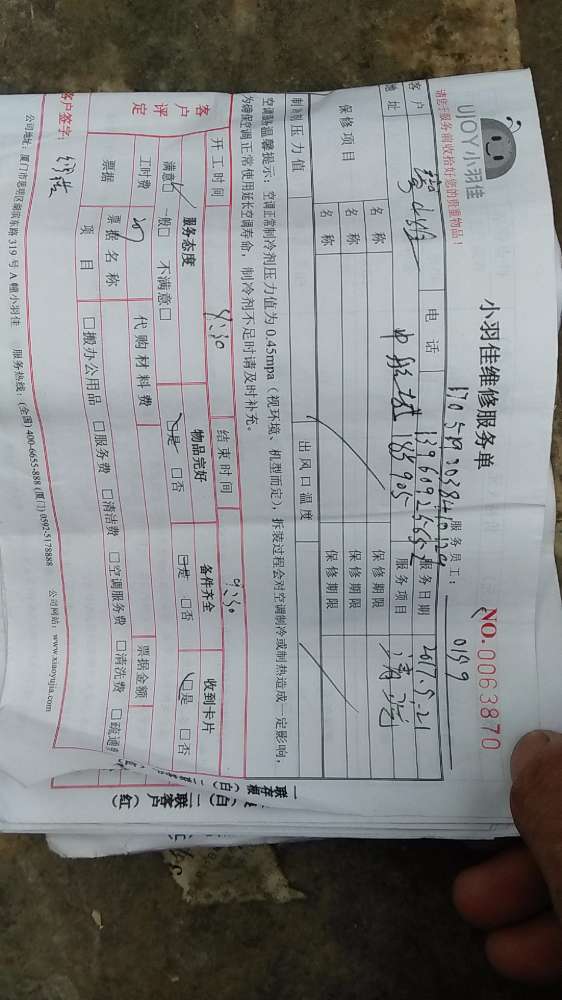 UJOY小羽佳
小羽佳维修服务单
NO.0063870
请您于服务前收拾好您的贵重物品!
服务员工: 0199
客户 电话 13960925652 服务日期 2017.5.21
地址 服务项目
保修项目 名称 保修期限
名称 保修期限
名称 保修期限
制剂压力值 出风口温度
空调器温馨提示:空调正常制冷剂压力值为0.45mpa(视环境、机型而定),拆装过程会对空调制冷或制热造成一定影响,
为确保空调正常使用延长空调寿命,制冷剂不足时请及时补充。
开工时间 结束时间
客户评定 服务态度 物品完好 备件齐全 收到卡片
满意□ 一般□ 不满意□ □是 □否 □是 □否 □是 □否
工时费 代购材料费 票据金额
票据 票据名称
项目 □搬办公用品 □服务费 □清洁费 □空调服务费 □清洗费 □疏通
客户签字:
公司地址:厦门市思明区湖滨东路319号A幢小羽佳 服务热线:(全国)400-6655-888 (厦门) 0592-5178888 公司网站:www.xiaoyujia.com
(白) 二联客户(红)